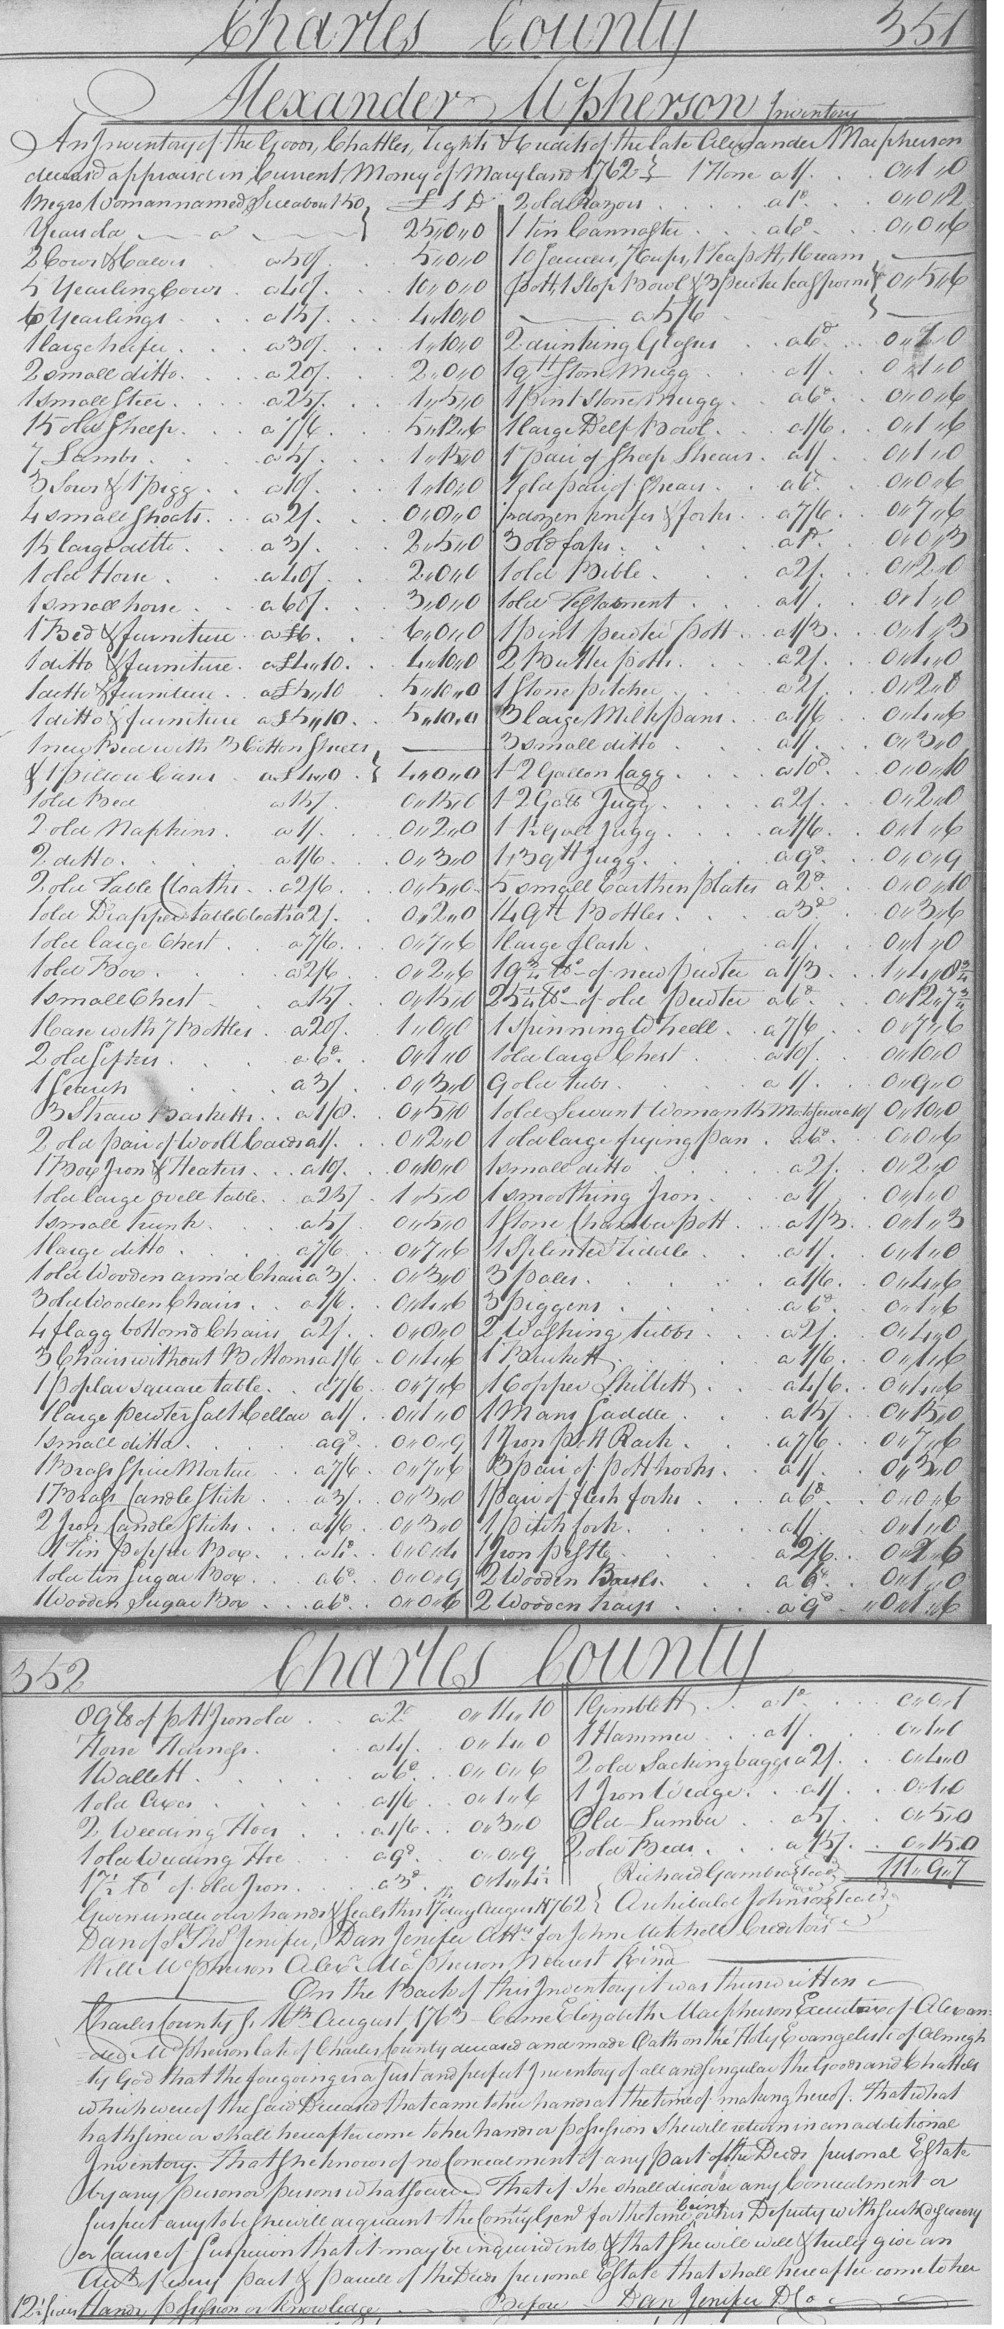 Charles County 351
Alexander McPherson Inventory
An Inventory of the Goods, Chattles, Rights & Credits of the late Alexander Macpherson
deceasd appraisd in Current Money of Maryland 1762 } 1 Hone a 1/. 0,,1,,0
1 Negro Woman named Sue about 50 } £ S D
Years old 25,,0,,0
2 Cows & Calves a 50/. 5,,0,,0
5 Yearling Cows a 40/. 10,,0,,0
6 Yearlings a 15/. 4,,10,,0
1 large heifer a 30/. 1,,10,,0
2 small ditto a 20/. 2,,0,,0
1 small Steer a 25/. 1,,5,,0
15 old Sheep a 7/6 5,,12,,6
7 Lambs a 5/. 1,,15,,0
3 Sows & 1 pigg a 10/. 1,,10,,0
4 small Shoats a 2/. 0,,8,,0
15 large ditto a 3/. 2,,5,,0
1 old Horse a 40/. 2,,0,,0
1 small horse a 60/. 3,,0,,0
1 Bed & furniture a £6 6,,0,,0
1 ditto & furniture a £4,,10 4,,10,,0
1 ditto & furniture a £5,,10 5,,10,,0
1 ditto & furniture a £5,,10 5,,10,,0
1 new Bed with 3 Cotton Sheets }
& 1 pillow Cases a £4,,0 } 4,,0,,0
1 old Bed a 15/. 0,,15,,0
2 old Napkins a 1/. 0,,2,,0
2 ditto a 1/6 0,,3,,0
2 old Table Cloaths a 2/6 0,,5,,0
1 old Drapper table Cloath a 2/. 0,,2,,0
1 old large Chest a 7/6 0,,7,,6
1 old Box a 2/6 0,,2,,6
1 small Chest a 15/. 0,,15,,0
1 Case with 7 Bottles a 20/. 1,,0,,0
2 old Sifters a 6d 0,,1,,0
1 Search a 3/. 0,,3,,0
3 Straw Basketts a 1/8 0,,5,,0
2 old pair of Wooll Cards a 1/. 0,,2,,0
1 Box Iron & Heaters a 10/. 0,,10,,0
1 old large ovell table a 25/. 1,,5,,0
1 small trunk a 5/. 0,,5,,0
1 large ditto a 7/6 0,,7,,6
1 old Wooden arm'd Chair a 3/. 0,,3,,0
3 old Wooden Chairs a 1/6 0,,4,,6
4 flagg bottomd Chairs a 2/. 0,,8,,0
3 Chairs without Bottoms a 1/6 0,,4,,6
1 poplar square table a 7/6 0,,7,,6
1 large pewter Salt Cellar a 1/. 0,,1,,0
1 small ditto a 9d 0,,0,,9
1 Brass Spice Mortar a 7/6 0,,7,,6
1 Brass Candle Stick a 3/. 0,,3,,0
2 Iron Candle Sticks a 1/6 0,,3,,0
1 tin pepper Box a 4d 0,,0,,4
1 old tin Sugar Box a 6d 0,,0,,9
1 Wooden Sugar Box a 6d 0,,0,,6
2 old Razors a 1d 0,,0,,2
1 tin Cannaster a 6d 0,,0,,6
10 Saucers, 7 Cups, 1 Teapott, 1 Cream
pott, 1 Slop Bowl & 3 pewter tea spoons } 0,,5,,6
a 5/6 }
2 drinking Glasses a 6d 0,,1,,0
1 qtt Stone Mugg a 1/. 0,,1,,0
1 pint Stone Mugg a 6d 0,,0,,6
1 large Delf Bowl a 1/6 0,,1,,6
1 pair of Sheep Shears a 1/. 0,,1,,0
1 old pair of Shears a 6d 0,,0,,6
½ dozen knifes & forks a 7/6 0,,7,,6
3 old faks a 1d 0,,0,,3
1 old Bible a 2/. 0,,2,,0
1 old Testament a 1/. 0,,1,,0
1 pint pewter pott a 1/3 0,,1,,3
2 Butter potts a 2/. 0,,4,,0
1 Stone pitcher a 2/. 0,,2,,0
3 large Milk pans a 1/6 0,,4,,6
3 small ditto a 1/. 0,,3,,0
1-2 Gallon Cagg a 10d 0,,0,,10
1-2 Galls Jugg a 2/. 0,,2,,0
1-1½ Gall Jugg a 1/6 0,,1,,6
1-3 qtt Jugg a 9d 0,,0,,9
5 small Earthen plates a 2d 0,,0,,10
14 qtt Bottles a 3d 0,,3,,6
1 large flask a 1/. 0,,1,,0
19¾ lbs of new pewter a 1/3 1,,4,,8¾
25¼ lbs of old pewter a 6d 0,,12,,7¾
1 Spinning Wheell a 7/6 0,,7,,6
1 old large Chest a 10/. 0,,10,,0
9 old tubs a 1/. 0,,9,,0
1 old Servant Woman 1h Mos to serve a 10/ 0,,10,,0
1 old large frying pan a 6d 0,,0,,6
1 small ditto a 2/. 0,,2,,0
1 smoothing Iron a 1/ 0,,1,,0
1 Stone Chamber pott a 1/3 0,,1,,3
1 Splented Riddle a 1/. 0,,1,,0
3 pales a 1/6 0,,4,,6
3 piggens a 6d 0,,1,,6
2 Washing tubbs a 2/. 0,,4,,0
1 Buckett a 1/6 0,,1,,6
1 Copper Skillett a 4/6 0,,4,,6
1 Mans Saddle a 15/ 0,,15,,0
1 Iron pott Rack a 7/6 0,,7,,6
3 pair of pott hooks a 1/ 0,,3,,0
1 pair of flesh forks a 6d 0,,0,,6
1 pitch fork a 1/ 0,,1,,0
1 Iron pestle a 2/6 0,,2,,6
2 Wooden Bowls a 6d 0,,1,,0
2 Wooden trays a 9d 0,,1,,6
352 Charles County
89 lb of pott Iron old a 2d 0,,14,,10
Horse Harness a 4/ 0,,4,,0
1 Wallett a 6d 0,,0,,6
1 old Axes a 1/6 0,,1,,6
2 Weeding Hoes a 1/6 0,,3,,0
1 old Weeding Hoe a 9d 0,,0,,9
17½ lb of old Iron a 3d 0,,4,,4½
1 Gimblett a 1d 0,,0,,1
1 Hammer a 1/ 0,,1,,0
2 old Sacking baggs a 2/. 0,,4,,0
1 Iron Wedge a 1/ 0,,1,,0
Old Lumber a 5/ 0,,5,,0
2 old Beds a 7/5/ 0,,15,,0
Richard Gambra (seal) 111,,9,,7
Given under our hands & Seals this 17 day August 1762 } Archibald Johnson (seal)
Dan of St Thos Jenifer, Dan Jenifer Attys for John Mitchell Creditors
Will McPherson Alexr McPherson nearest Kind
On the Back of this Inventory it was thus written
Charles County Ss 16th August 1763 - Came Elizabeth Macpherson Executrix of Alexan-
-der McPherson late of Charles County deceased and made Oath on the Holy Evangelists of Almigh
-ty God that the foregoing is a Just and perfect Inventory of all and Singular the Goods and Chattels
which were of the said Deceased that came to her hands at the time of making hereof. That what
hath since or shall hereafter come to her hands or possession she will return in an additional
Inventory. That she knows of no Concealment of any part of the Deceds personal Estate
by any person or persons whatsoever That if she shall discover any Concealment or
Suspect any to be she will acquaint the Comry Genl for the time being or his Deputy with such discovery
or Cause of Suspicion that it may be inquired into & that she will well & truly give an
Acct of every part & parcell of the Deceds personal Estate that shall hereafter come to her
12 Sides Hands, possession or knowledge Before Dan Jenifer DCo